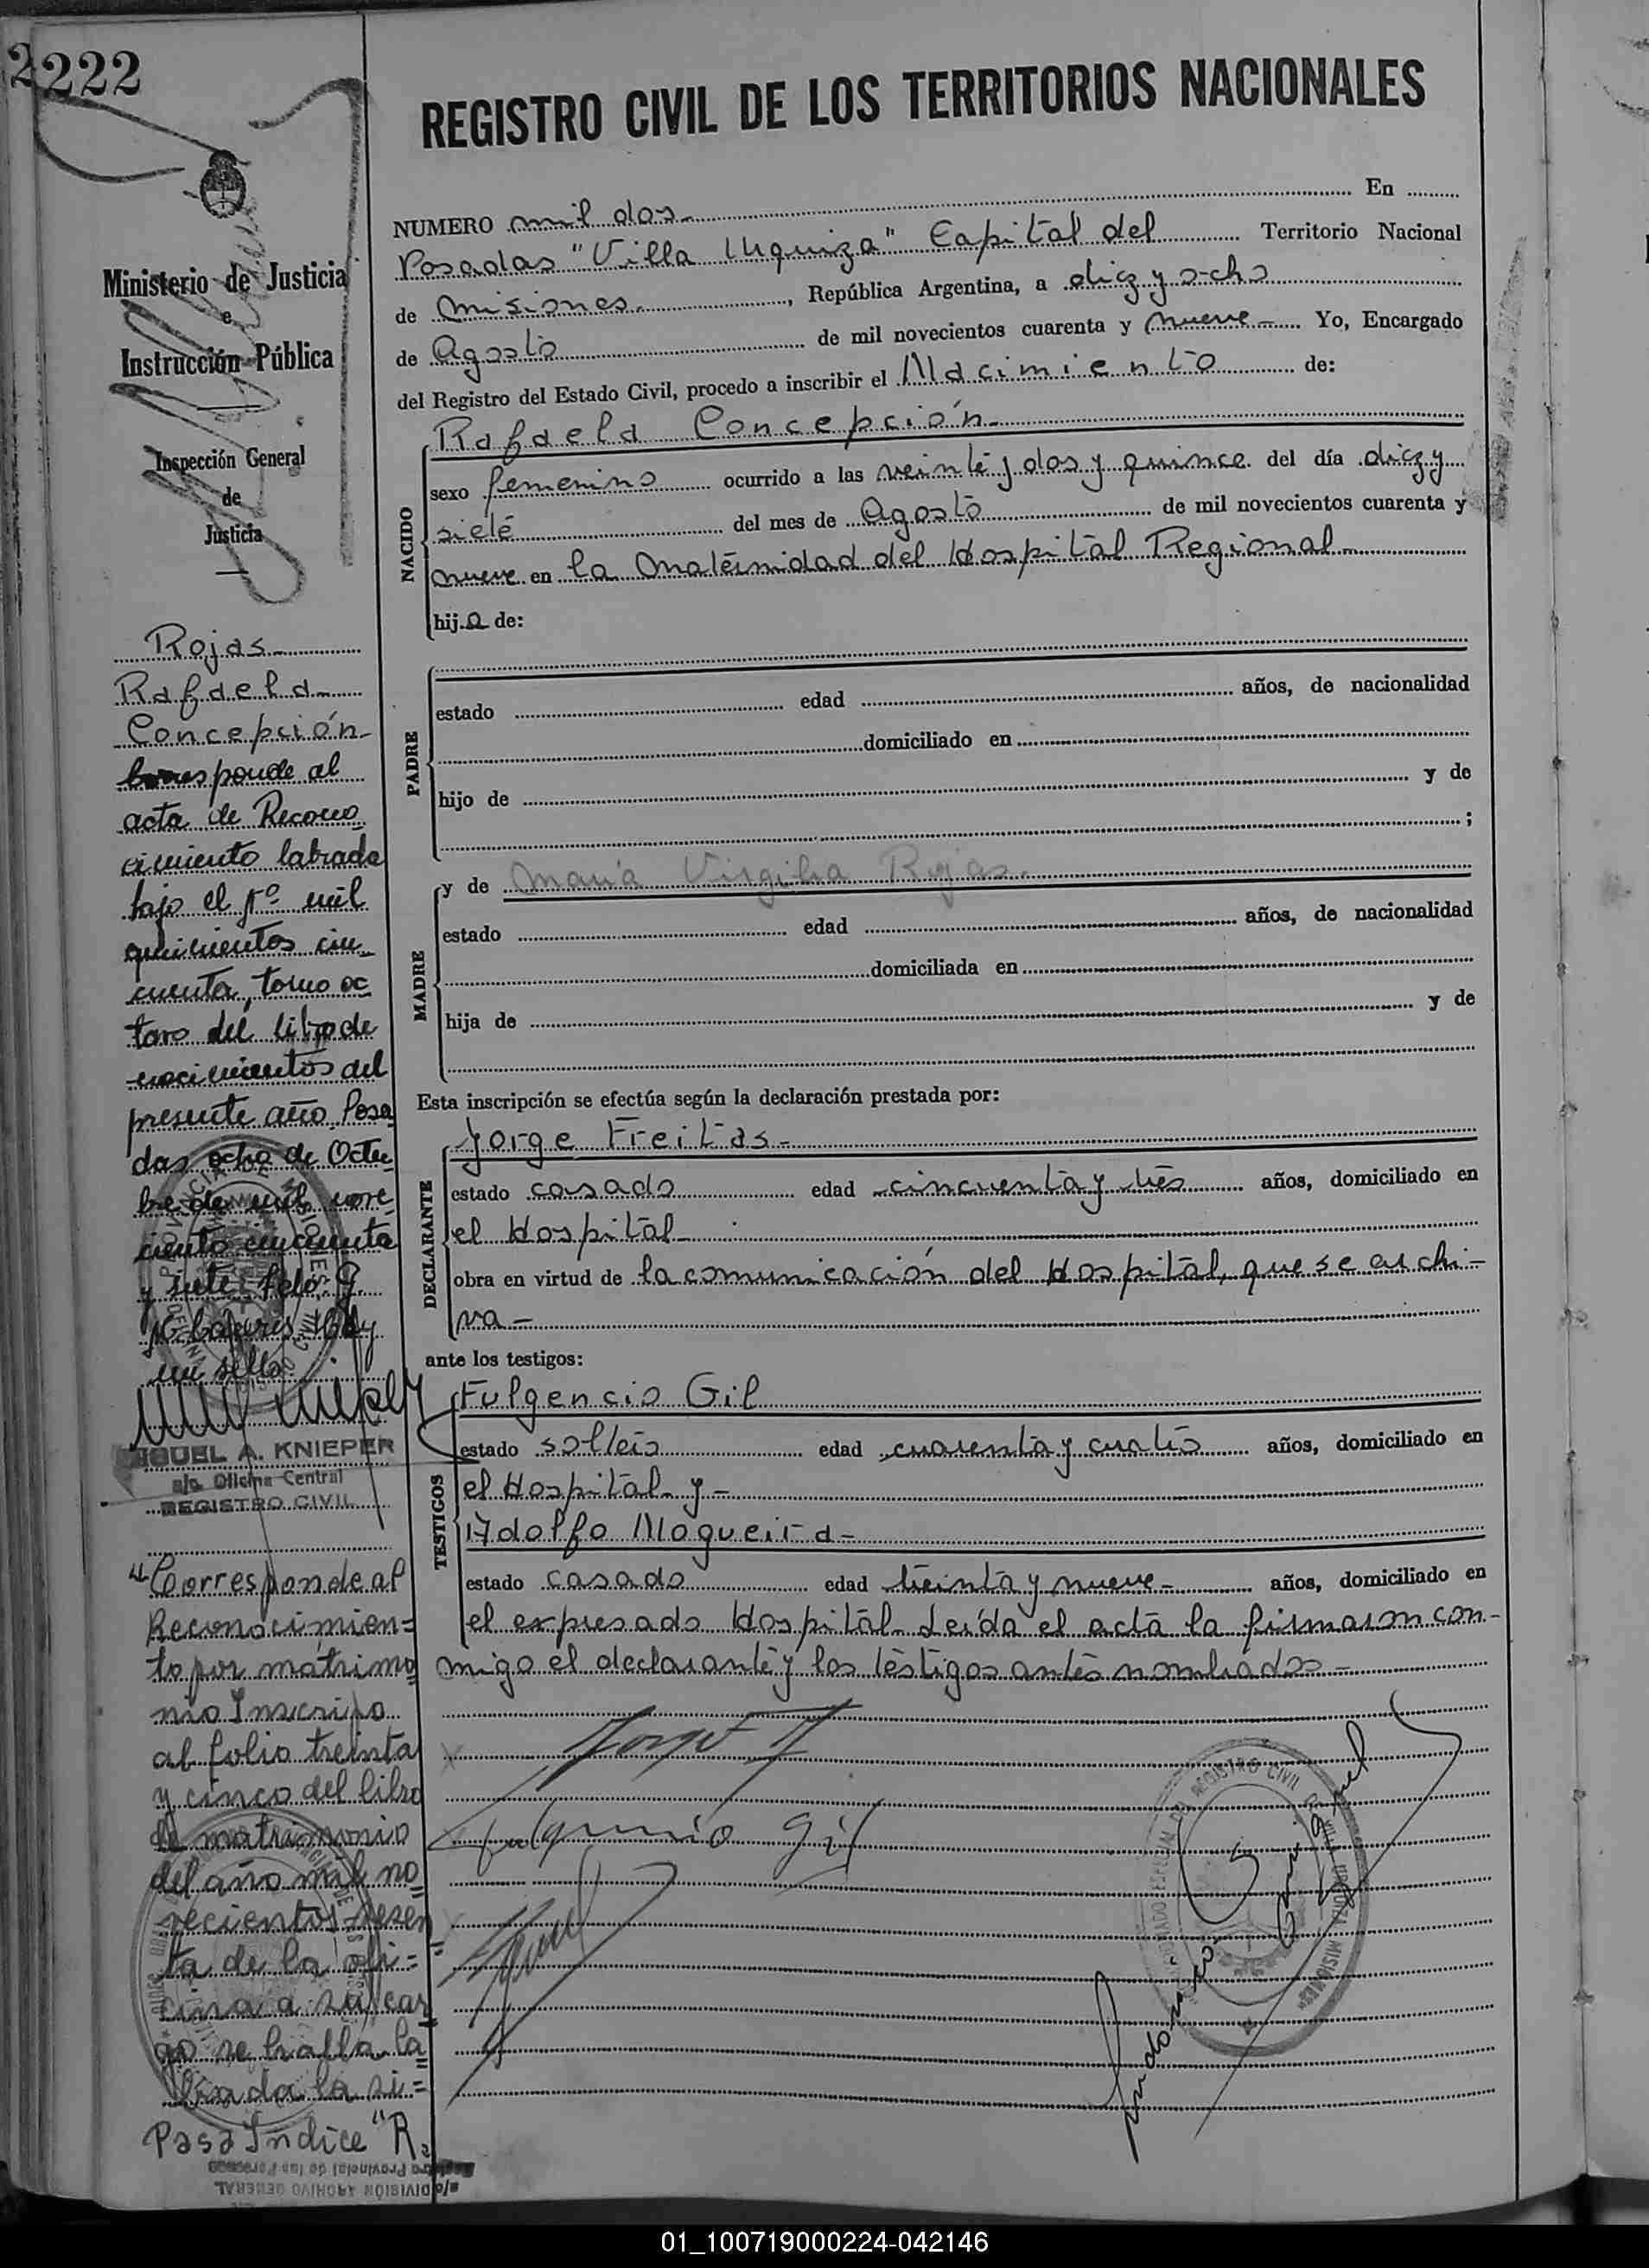 222
REGISTRO CIVIL DE LOS TERRITORIOS NACIONALES
Ministerio de Justicia
e
Instrucción Pública
Inspección General
de
Justicia
NUMERO mil dos- En
Posadas "Villa Urquiza" Capital del Territorio Nacional
de Misiones. , República Argentina, a diez y ocho
de Agosto de mil novecientos cuarenta y nueve- Yo, Encargado
del Registro del Estado Civil, procedo a inscribir el Nacimiento de:
NACIDO
Rafaela Concepción-
sexo femenino ocurrido a las veinte y dos y quince del día diez y
siete del mes de Agosto de mil novecientos cuarenta y
nueve en la Maternidad del Hospital Regional-
hija de:
PADRE
estado edad años, de nacionalidad
domiciliado en
hijo de y de
;
MADRE
y de María Virgilia Rojas.
estado edad años, de nacionalidad
domiciliada en
hija de y de
Esta inscripción se efectúa según la declaración prestada por:
DECLARANTE
Jorge Freitas-
estado casado edad cincuenta y tres años, domiciliado en
el Hospital-
obra en virtud de la comunicación del Hospital, que se archi-
va-
ante los testigos:
TESTIGOS
Fulgencio Gil
estado soltero edad cuarenta y cuatro años, domiciliado en
el Hospital y-
Adolfo Nogueira-
estado casado edad treinta y nueve- años, domiciliado en
el expresado Hospital- Leída el acta la firmaron con-
migo el declarante y los testigos antes nombrados-
Fulgencio Gil
REGISTRO CIVIL
MISIONES
Rojas-
Rafaela-
Concepción-
Corresponde al
acta de Recono
cimiento labrada
bajo el Nº mil
quinientos cin
cuenta, tomo oc
tavo del libro de
nacimientos del
presente año. Posa
das ocho de Octu
bre de mil nove
ciento cincuenta
y siete.
mi sello.
MIGUEL A. KNIEPER
a/c. Oficina Central
REGISTRO CIVIL
"Corresponde al
Reconocimien=
to por matrimo
nio Inscripo
al folio treinta
y cinco del libro
de matrimonio
del año mil no
vecientos sesen
ta de la ofi=
cina a su car
go se halla la
brada la si=
Pasa Indice "R.
Registro Provincial de las Personas
a/c DIVISION ARCHIVO GENERAL
01_100719000224-042146